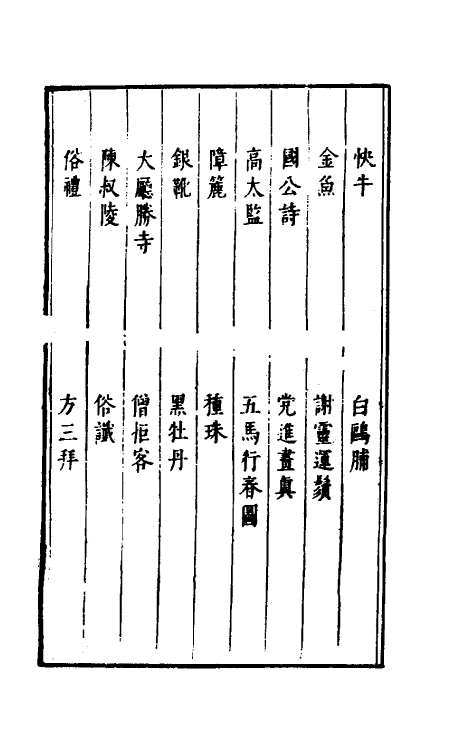 快牛　白鷗脯
金魚　謝靈運鬚
國公詩　党進畫真
高太監　五馬行春圖
障簏　種珠
銀靴　黑牡丹
大廳勝寺　僧拒客
陳叔陵　俗讖
俗禮　方三拜